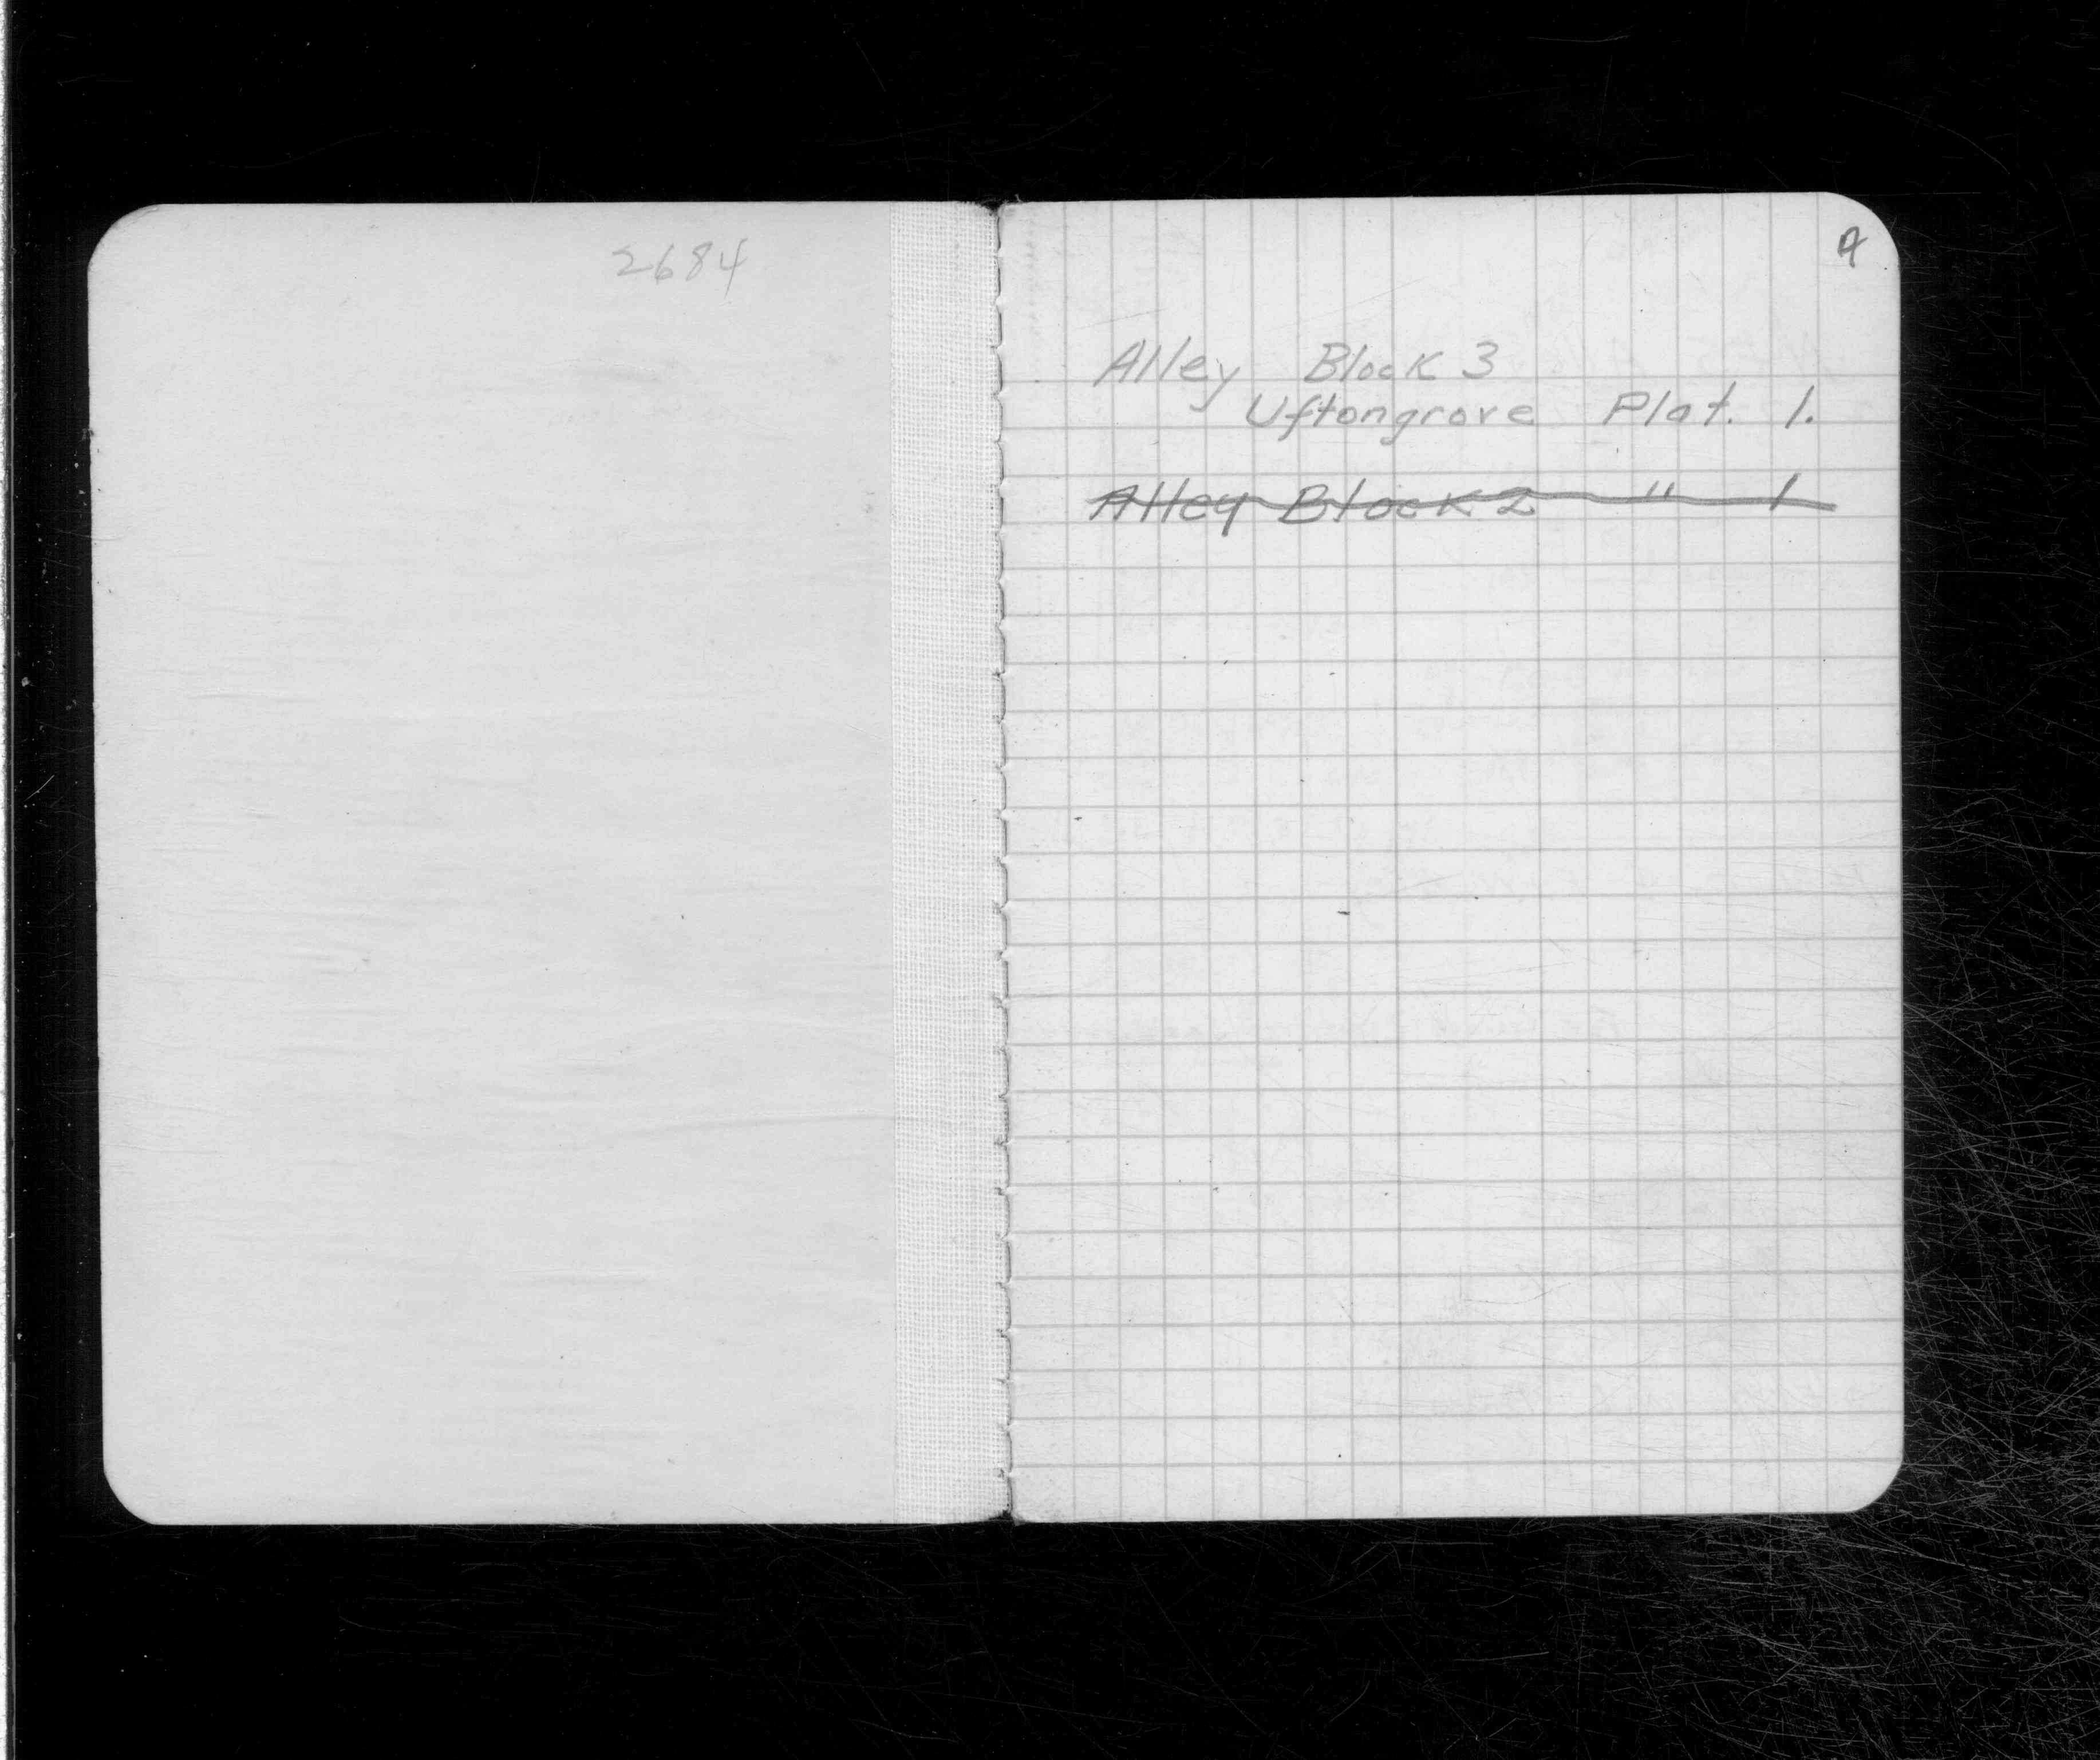 2684
A
Alley Block 3
Uftongrove Plat. 1.
Alley Block 2 " 1